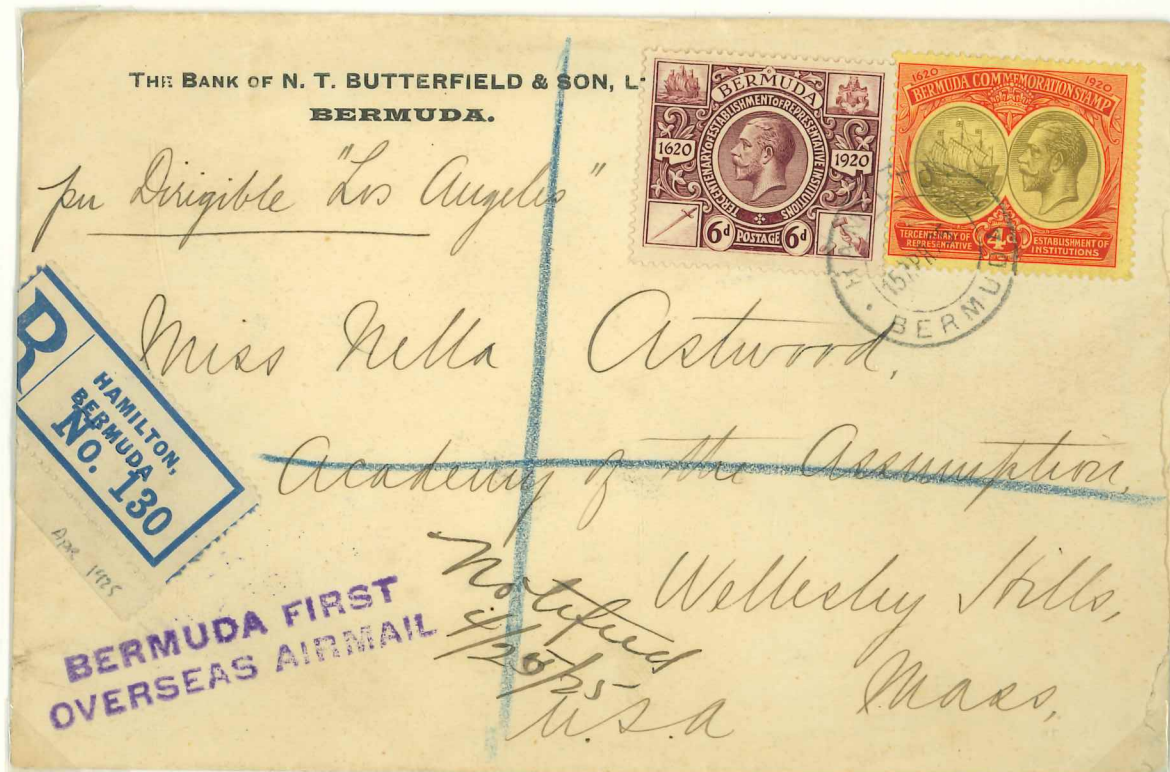 THE BANK OF N. T. BUTTERFIELD & SON, L
BERMUDA.
per Dirigible "Los Angeles"
BERMUDA
TERCENTENARY OF ESTABLISHMENT OF REPRESENTATIVE INSTITUTIONS
1620 1920
6d POSTAGE 6d
1620 1920
BERMUDA COMMEMORATION STAMP
TERCENTENARY OF REPRESENTATIVE 4d ESTABLISHMENT OF INSTITUTIONS
BERMUDA
R
HAMILTON,
BERMUDA
No. 130
Apr 1925
Miss Nella Astwood,
Academy of the Assumption,
Wellesley Hills,
Mass,
U.S.A
Notified
BERMUDA FIRST
OVERSEAS AIRMAIL